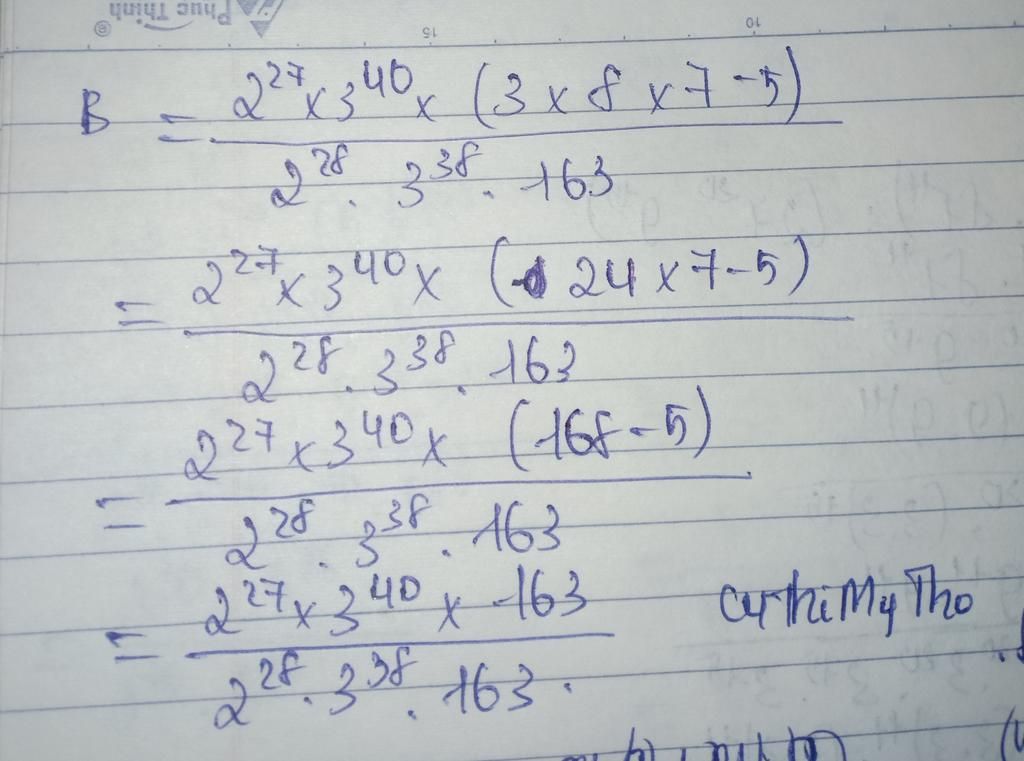 Phuc Thinh ©
15 10
B = \frac{2^{27} × 3^{40} × (3 × 8 × 7 - 5)}{2^{28} . 3^{38} . 163}
= \frac{2^{27} × 3^{40} × (24 × 7 - 5)}{2^{28} . 3^{38} . 163}
= \frac{2^{27} × 3^{40} × (168 - 5)}{2^{28} . 3^{38} . 163}
= \frac{2^{27} × 3^{40} × 163}{2^{28} . 3^{38} . 163} .